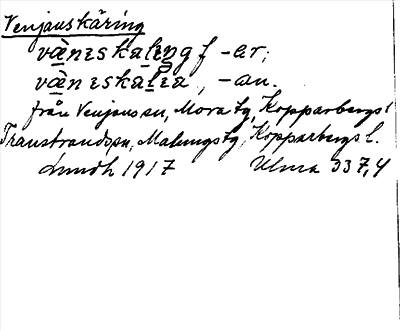 Venjanskäring
vànɪskalɪŋg f -ar;
vànɪskälɪa, -an.
från Venjans sn, Mora tg, Kopparbergs l
Transtrands sn, Malungs tg, Kopparbergs l.
Lundh 1917 Ulma 337,4